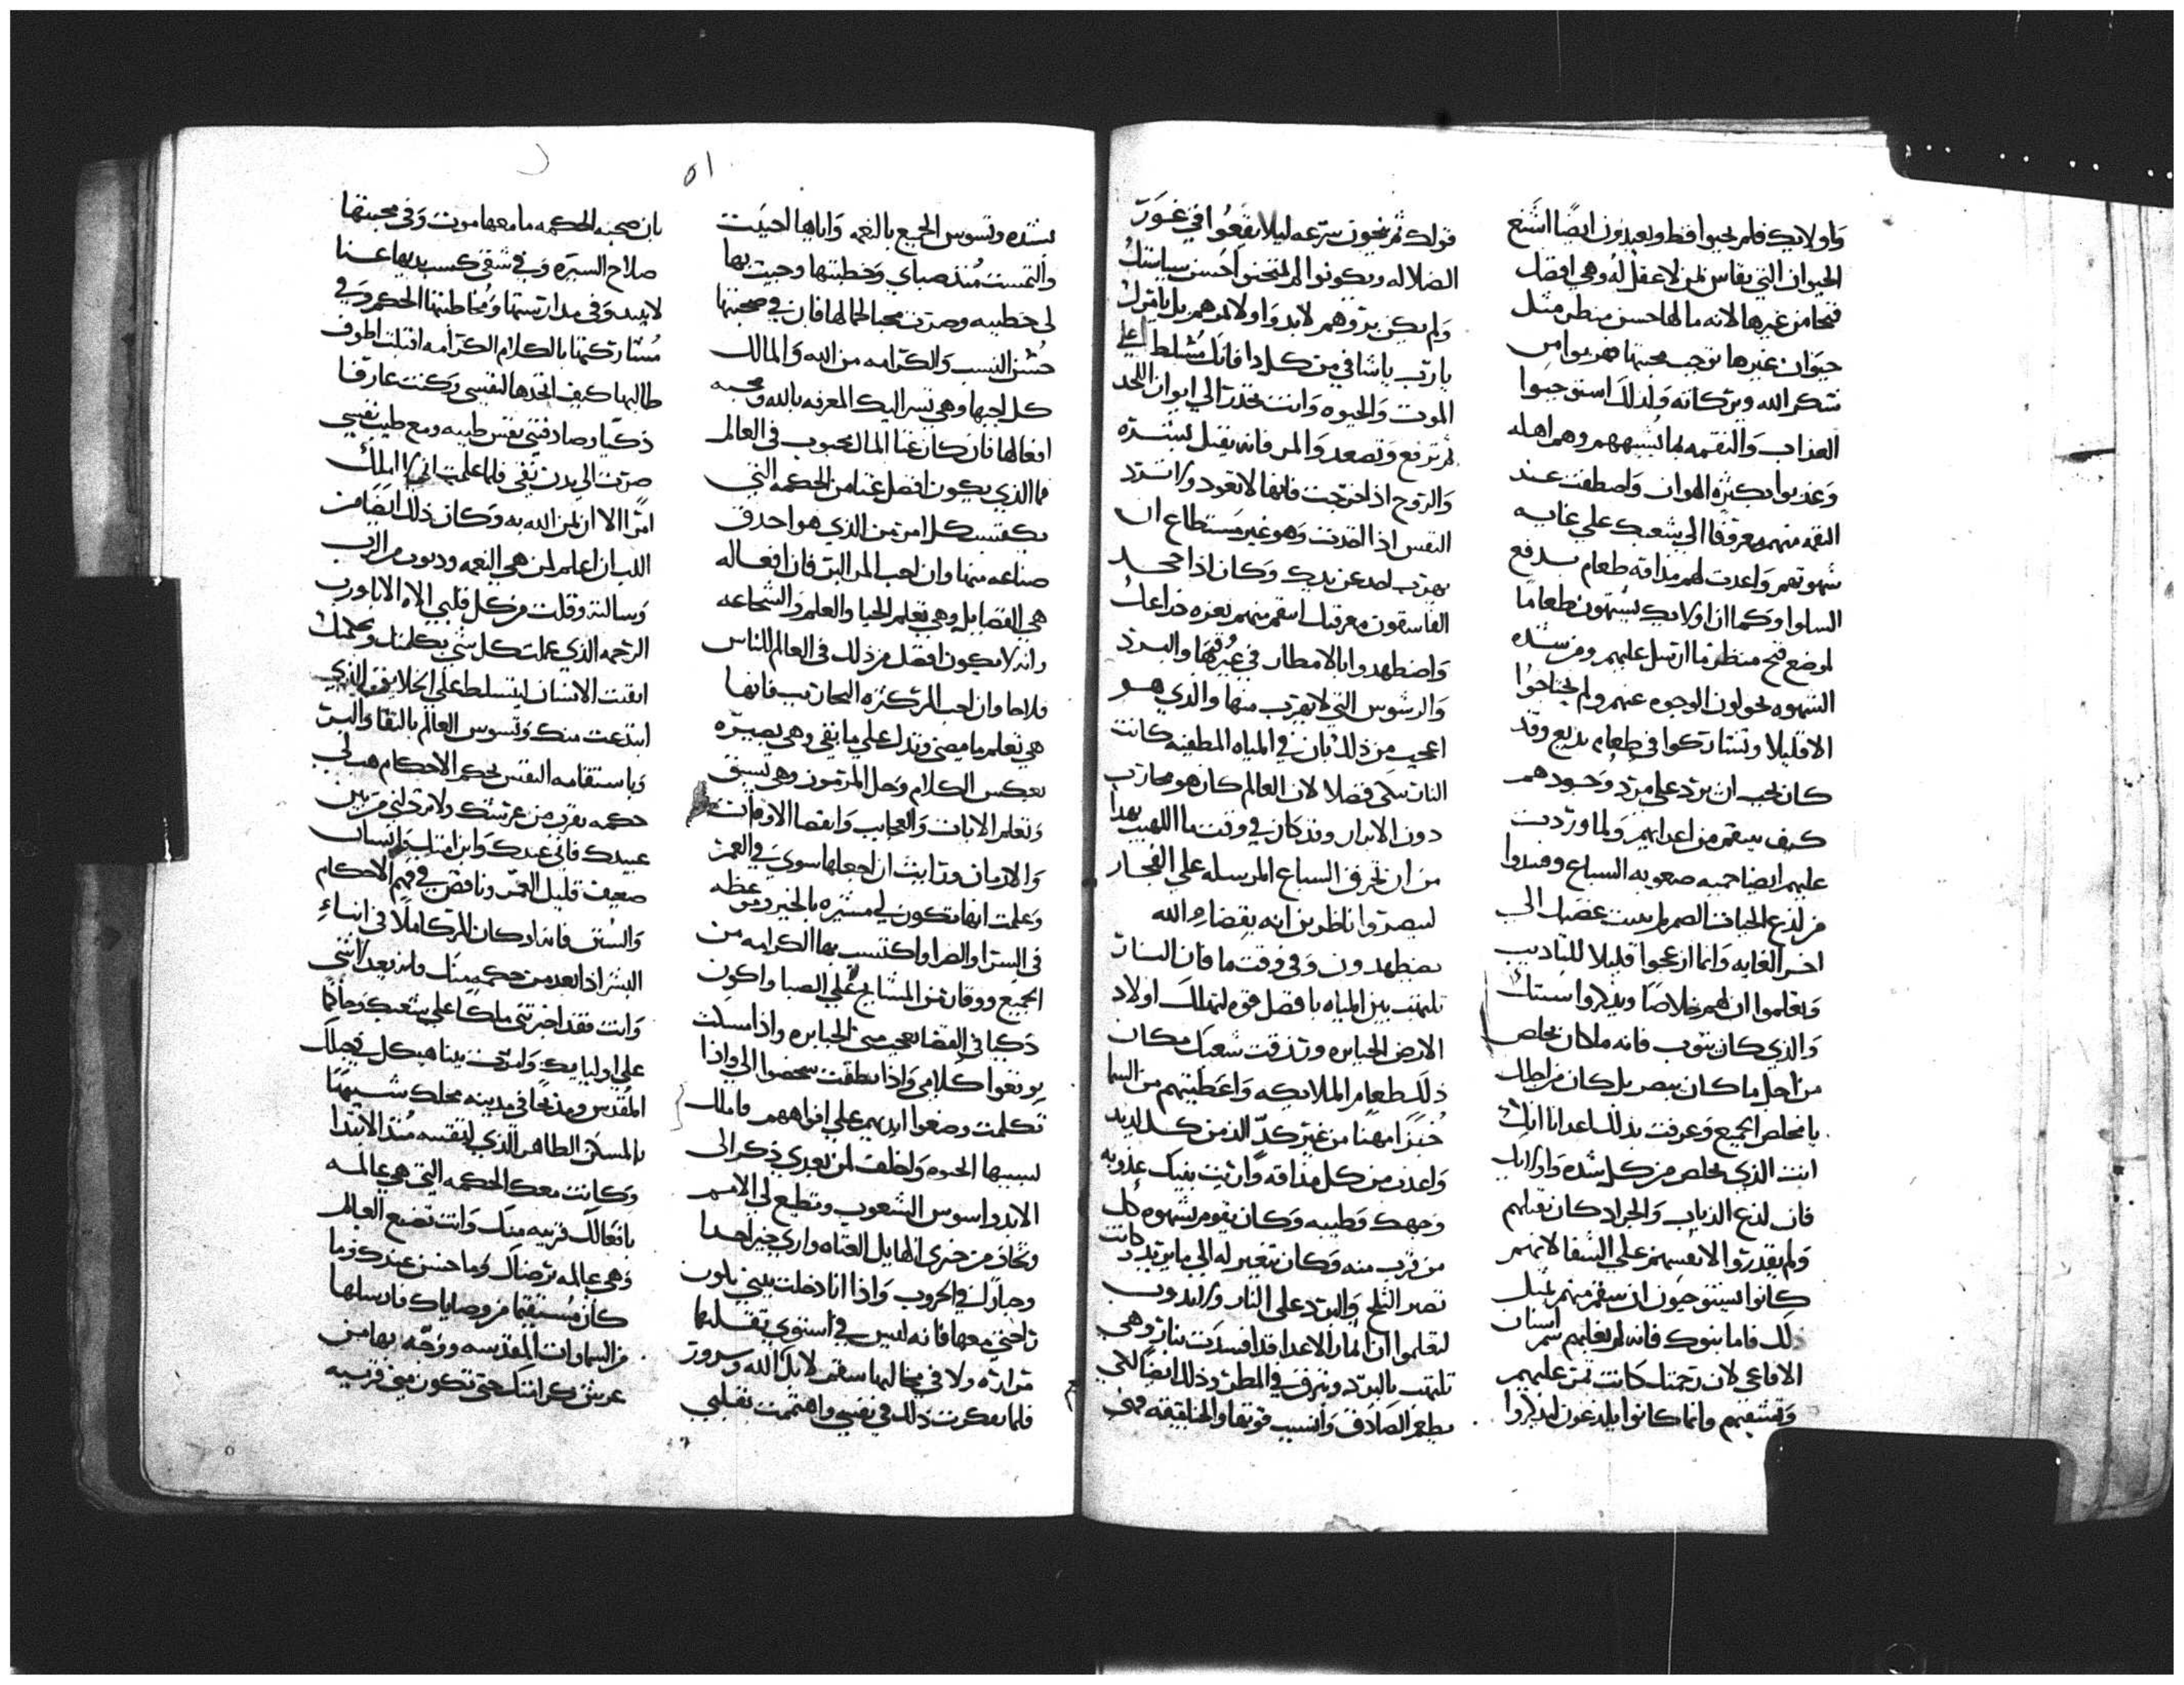 واولايك فلم يحيوا قط ويعبدون ايضًا اشنع
الحيوان التي يقاس لمن لا عقل له وهي افضل
قبحا من غيرها لانه ما لها حسن منظر مثل
حيوان غيرها توجب محبتها فهربوا من
شكر الله وبركاته ولذلك استوجبوا
العداب والنقمه بما يُشبههم وهم اهله
وعذبوا بكثره الهوان واصطفت عند
النقمه منهم معروفا الي شعبك علي غايه
شهوتهم واعدت لهم مداقه طعام يدفع
السلوا وكما ان اولايك يشتهون طعامًا
لموضع قبح منظر ما ارسل عليهم ومن شده
الشهوه يحولون الوجوه عنهم ولم يحتاجوا
الا قليلا وتشاركوا في طعام بديع وقد
كان يجب ان يرد علي مرد وجودهم
كيف ينتقم من اعدايهم ولما وردت
عليهم ايضا حميه صعوبه السباع وفسدوا
من لدع الحيات الصم لم يبت غضبك الي
اخر الغايه وانما ازعجوا قليلا للتاديب
وتعلموا ان لهم خلاصًا ويذكروا سنتك
والذي كان يتوب فانه ما كان يخلص
من اجل ما كان يبصر بل كان من اجلك
يا مخلص الجميع وعرفت بذلك اعدانا انك
انت الذي يخلص من كل شده واولايك
فان لدع الذباب والجراد كان يقتلهم
ولم يقدروا لانفسهم علي الشفا لانهم
كانوا يستوجبون ان ينتقم منهم بمثل
ذلك فاما بنوك فانه لم يغلبهم سم اسنان
الافاعي لان رحمتك كانت تمر عليهم
وتشفيهم وانما كانوا يلدغون ليذكروا
قولك ثم ينجون سرعه ليلا يقعوا في غور
الضلاله ويكونوا لم يمتحنوا حسن سياستك
ولم يكن بروهم لابد ولا لادهم بل بامرك
يا رب يا شافي من كل دا فانك مُسلط علي
الموت والحيوه وانت تحدر الي ابواب اللحد
ثم ترفع وتصعد والمر فانه يقتل بشره
والروح اذا خرجت فانها لا تعود ولا ترد
النفس اذا اخدت وهو غير مستطاع ان
يهرب احد عن يدك وكان اذا جحد
الفاسقون معرفتك انتقم منهم بعزه ذراعك
واضطهدوا بالامطار في غرقها والبرد
والرشوس التي لا يهرب منها والدي هو
اعجب من ذلك بان في المياه المطفيه كانت
النار تذكى فضلا لان العالم كان هو محارب
دون الابرار وقد كان في وقت ما اللهيب يهدا
من ان يحرق السباع المرسله علي الفجار
ليبصروا ناظرين انه بقضاء الله
يضطهدون وفي وقت ما فان النار
تلتهب بين المياه بافضل قوه لتهلك اولاد
الارض الجبابره ورزقت شعبك مكان
ذلك طعام الملايكه واعطيتهم من السما
خبزًا مهنا من غير كدّ الذ من كل لديد
واعدب من كل مداقه واريت بنيك عدوبه
وجهك وطيبه وكان يقوم بشهوه كل
من قرب منه وكان تغييره له الي ما يريد كانت
تصبر الثلج والبرد علي النار ولا يذوب
ليعلموا ان اثمار الاعدا قد افسدت بنار وهي
تلتهب بالبرد وتبرق في المطر وذلك ايضًا لكي
يطعم الصادق وانسيت قوتها والخليقه فهي
٥١
بشده وتسوس الجميع بالنعمه واياها احببت
والتمست مُنذ صباي وخطبتها وحببت بها
لي خطيبه وصرت محبا لجمالها فان في صحبتها
حُسن النسب والكرامه من الله والمالك
كل احبها وهي تسر اليك المعرفه بالله ومحبه
افعالها فان كان غنا المال محبوب في العالم
فما الذي يكون افضل غنا من الحكمه التي
يكتسب كل امر من الذي هو احذق
صناعه منها وان احب المر البر فان افعاله
هي الفضايل وهي تعلم الحيا والعلم والشجاعه
وانه لا يكون افضل من ذلك في العالم للناس
فلاحا وان احب المر كثره التجارب فانها
هي تعلم ما مضى وتدل علي ما بقي وهي بصيره
بعكس الكلام وحل المرموز وهي تسبق
وتعلم الايات والعجايب وانقضا الاوقات
والازمان ورايت ان اجعلها سوى في العمر
وعلمت انها تكون لي مشيره بالخير وموعظه
في السرا والضرا واكتسب بها الكرامه من
الجميع ووقار من المشايخ علي الصبا واكون
ذكيا في القضا يعجب مني الجبابره واذا مسكت
يوقعوا كلامي واذا نطقت يحصوا الي واذا
تكلمت وضعوا ايديهم علي افواههم فاملك
بسببها الحيوه واخلف لمن بعدي ذكرا الي
الابد واسوس الشعوب وتطيع لي الامم
وتخاف من خبري الهايل العتاه واري خيرا جدا
وجبارًا في الحروب واذا انا دخلت بيتي يكون
راحتي معها فانه ليس في استوي تقلبها
مراره ولا في مخالبها سقم لا بل لله وسرور
فلما تفكرت ذلك في نفسي واهتممت بقلبي
بان صحبه الحكمه ما معها موت وفي محبتها
صلاح السيره وفي شقى كسب يديها غنا
لا يبيد وفي مدارستها ومُخاطبتها الحكم وفي
مُشاركتها بالكلام الكرامه اقبلت اطوف
طالبها كيف اتخدها لنفسي وكنت عارفا
ذكيًا وصادفتني نفس طيبه ومع طيب نفسي
صرت الي بدن نقي فلما علمت اني لا املك
امرًا الا ان يمن الله به وكان ذلك ايضا من
اللب ان اعلم لمن هي النعمه ودنوت من الرب
وسالته وقلت من كل قلبي الاه الابا ورب
الرحمه الذي عملت كل شي بكلمتك وحكمتك
اتقنت الانسان ليتسلط علي الخلايق الذي
ابتدعت منك وتسوس العالم بالنقا والبر
وباستقامه النفس يحكم الاحكام هب لي
حكمه تقرب من عرشك ولا ترذلني من بين
عبيدك فاني عبدك وابن امتك وانسان
ضعيف قليل العمر وناقص في فهم الاحكام
والسنن فانه اد كان المر كاملا في ابناءِ
البشر اذا بعد من حكمه منك فانه يعد لا شي
وانت فقد اخترتني ملكا علي شعبك وحاكمًا
علي اوليايك وامرت ببنا هيكل في جبلك
المقدس ومذبحا في مدينه محلك شبيهًا
بالمسكن الطاهر الذي لنفسه مُنذ الابتدا
وكانت معك الحكمه التي هي عالمه
بافعالك قريبه منك وانت تصنع العالم
وهي عالمه برضاك وما حسن عندك وما
كان مُستقيما من وصاياك فارسلها
من السماوات المقدسه ووجه بها من
عرش كرامتك حتي تكون مني قريبه